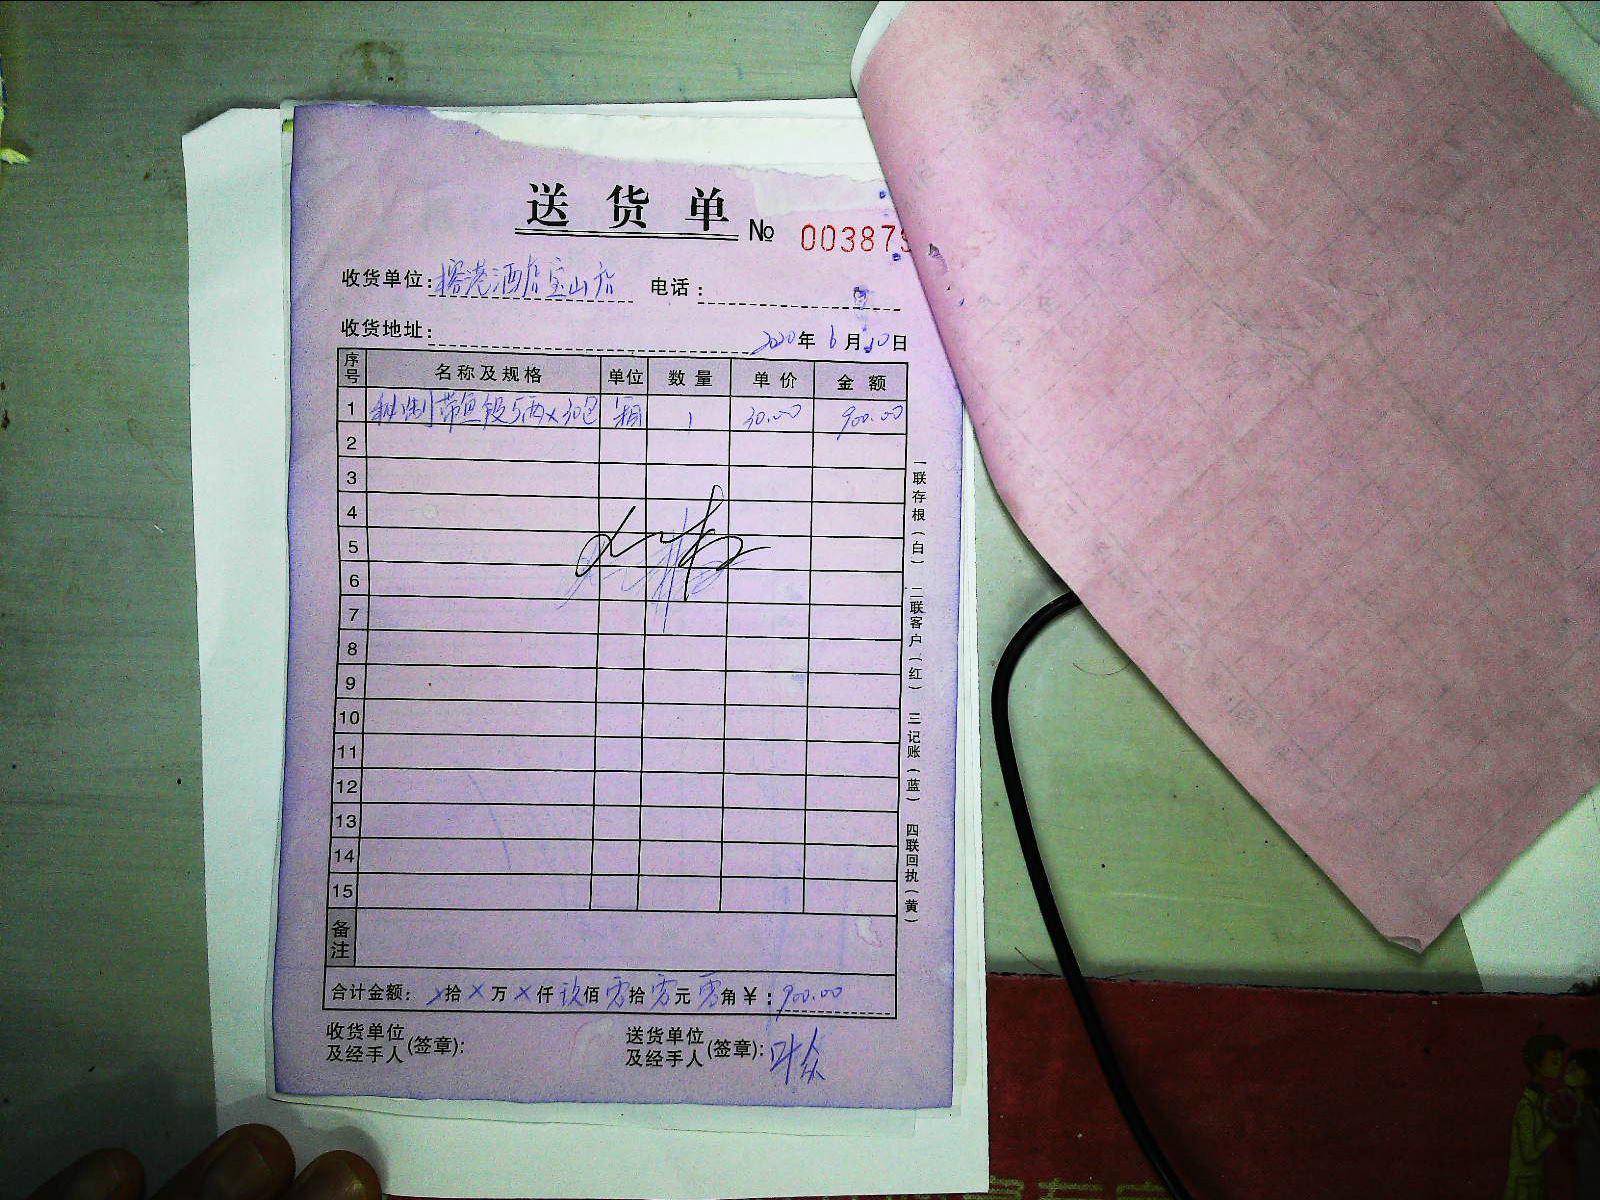 送货单 № 003873
收货单位：榕港酒店宝山店 电话：
收货地址：
2020年6月10日
序号 名称及规格 单位 数量 单价 金额
1 秘制带鱼段5两×30包 箱 1 30.00 900.00
2
3
4
5
6
7
8
9
10
11
12
13
14
15
备注
合计金额：×拾×万×仟玖佰零拾零元零角¥：900.00
收货单位及经手人(签章)： 送货单位及经手人(签章)：叶众
一联存根（白） 二联客户（红） 三记账（蓝） 四联回执（黄）